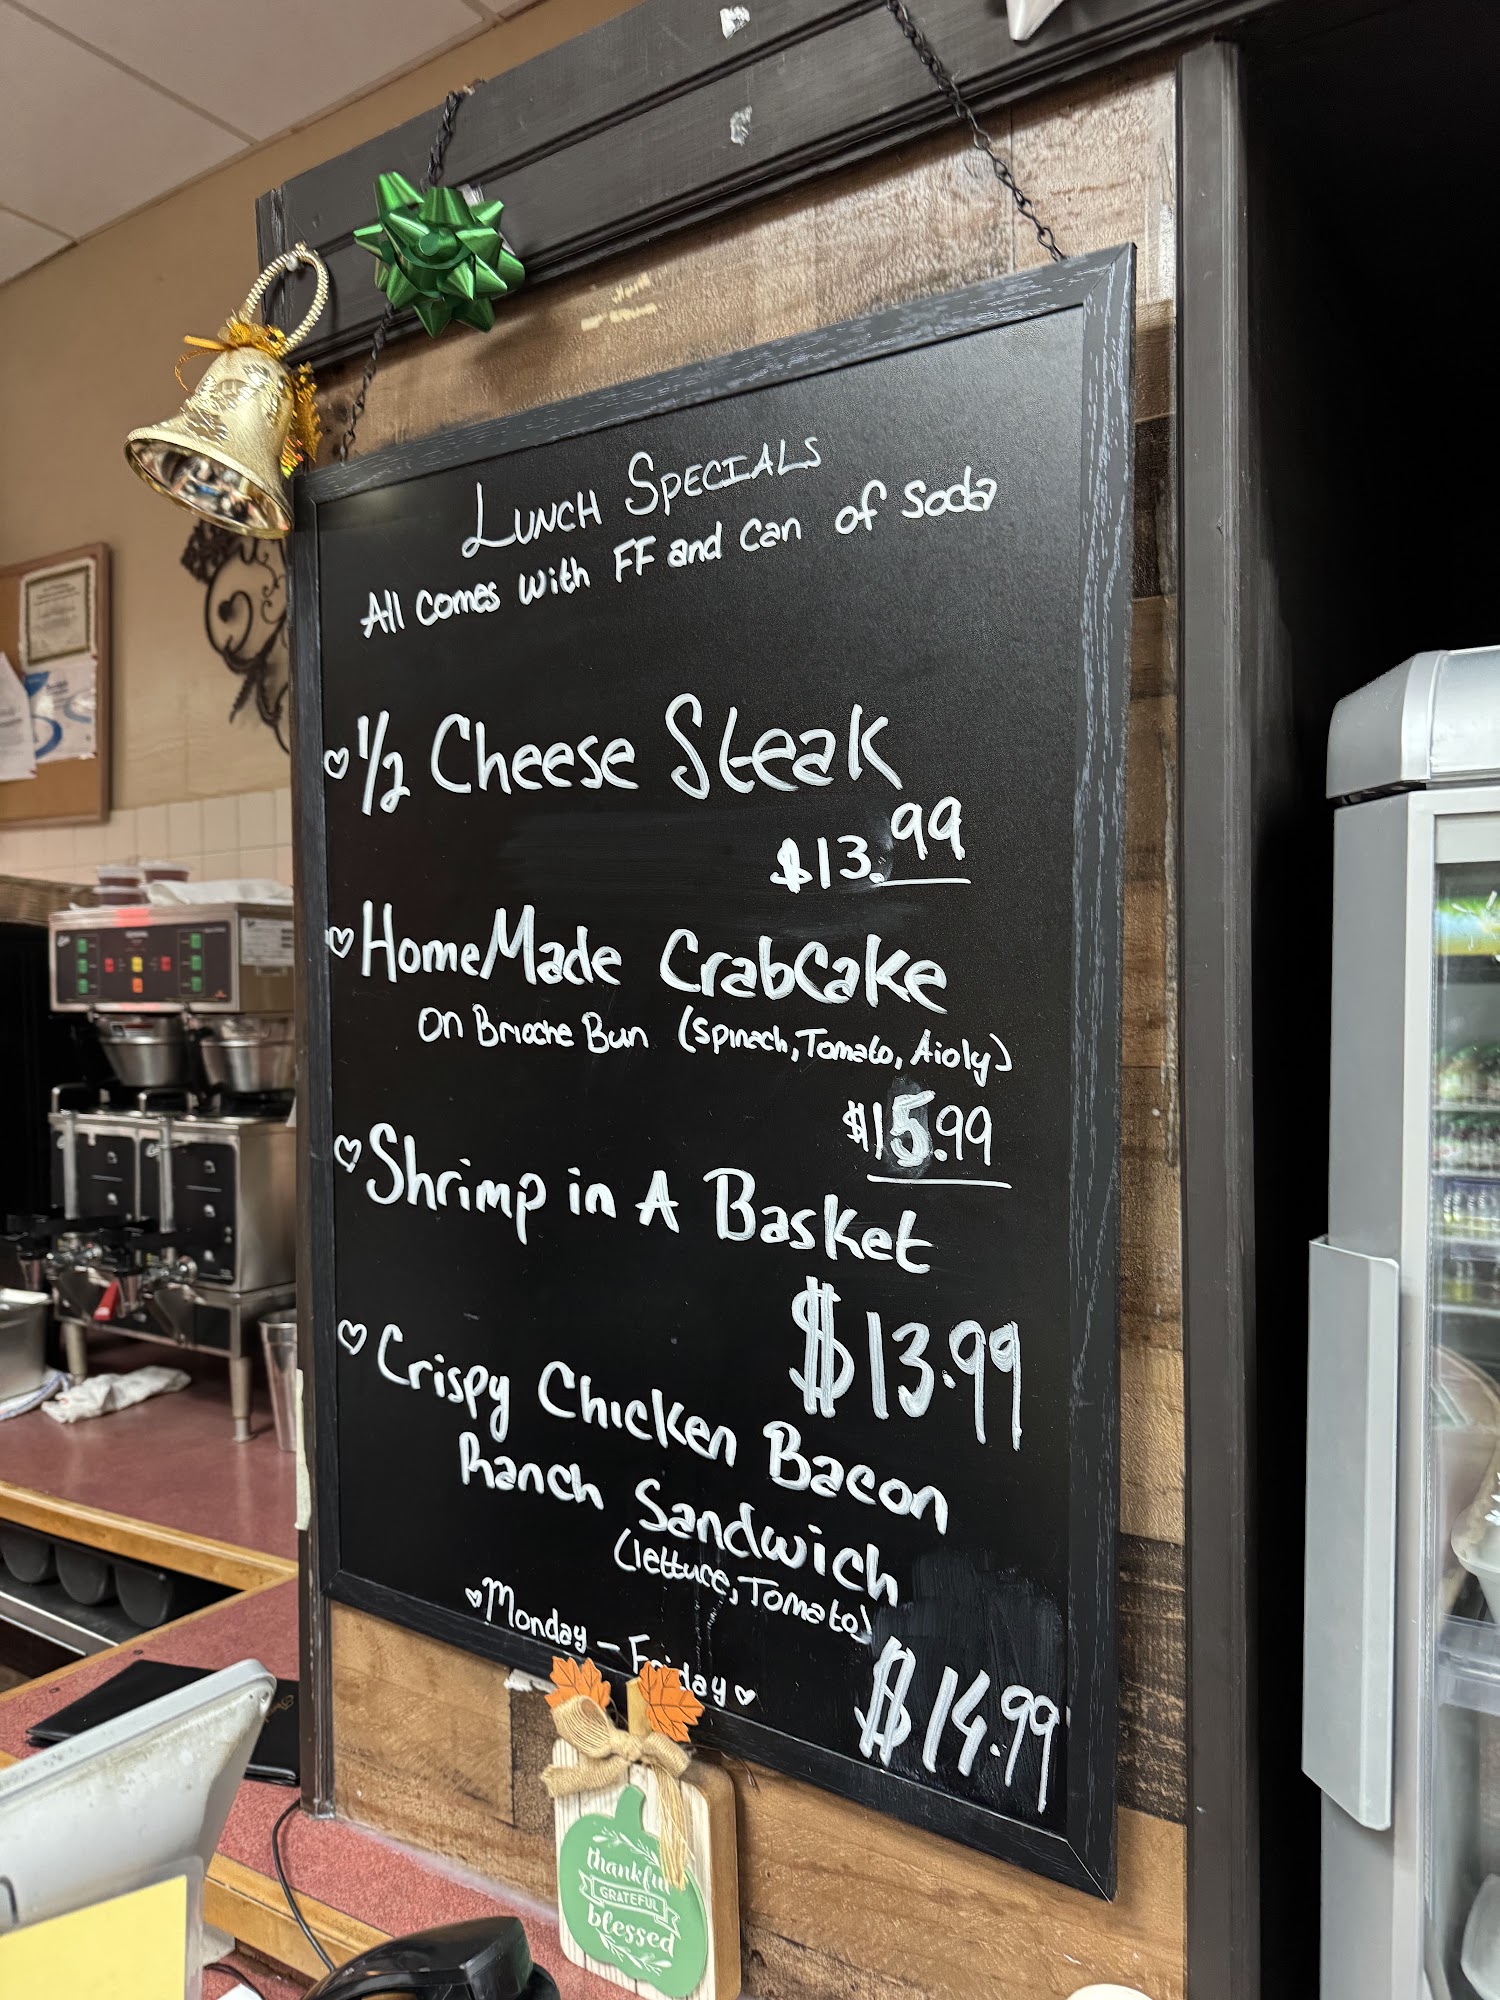 Lunch Specials
All comes with FF and can of soda
♡ 1/2 Cheese Steak
$13.99
♡ HomeMade CrabCake
on Brioche Bun (spinach, Tomato, Aioly)
$15.99
♡ Shrimp in A Basket
$13.99
♡ Crispy Chicken Bacon
Ranch Sandwich
(lettuce, Tomato)
$14.99
♡ Monday - Friday ♡
thankful
GRATEFUL
blessed